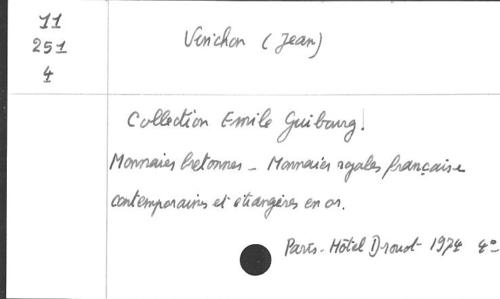 11
251
4
Vinchon (Jean)
Collection Emile Guibourg!
Monnaies bretonnes - Monnaies royales française
contemporains et étrangères en or.
Paris - Hôtel Drouot 1974 4°